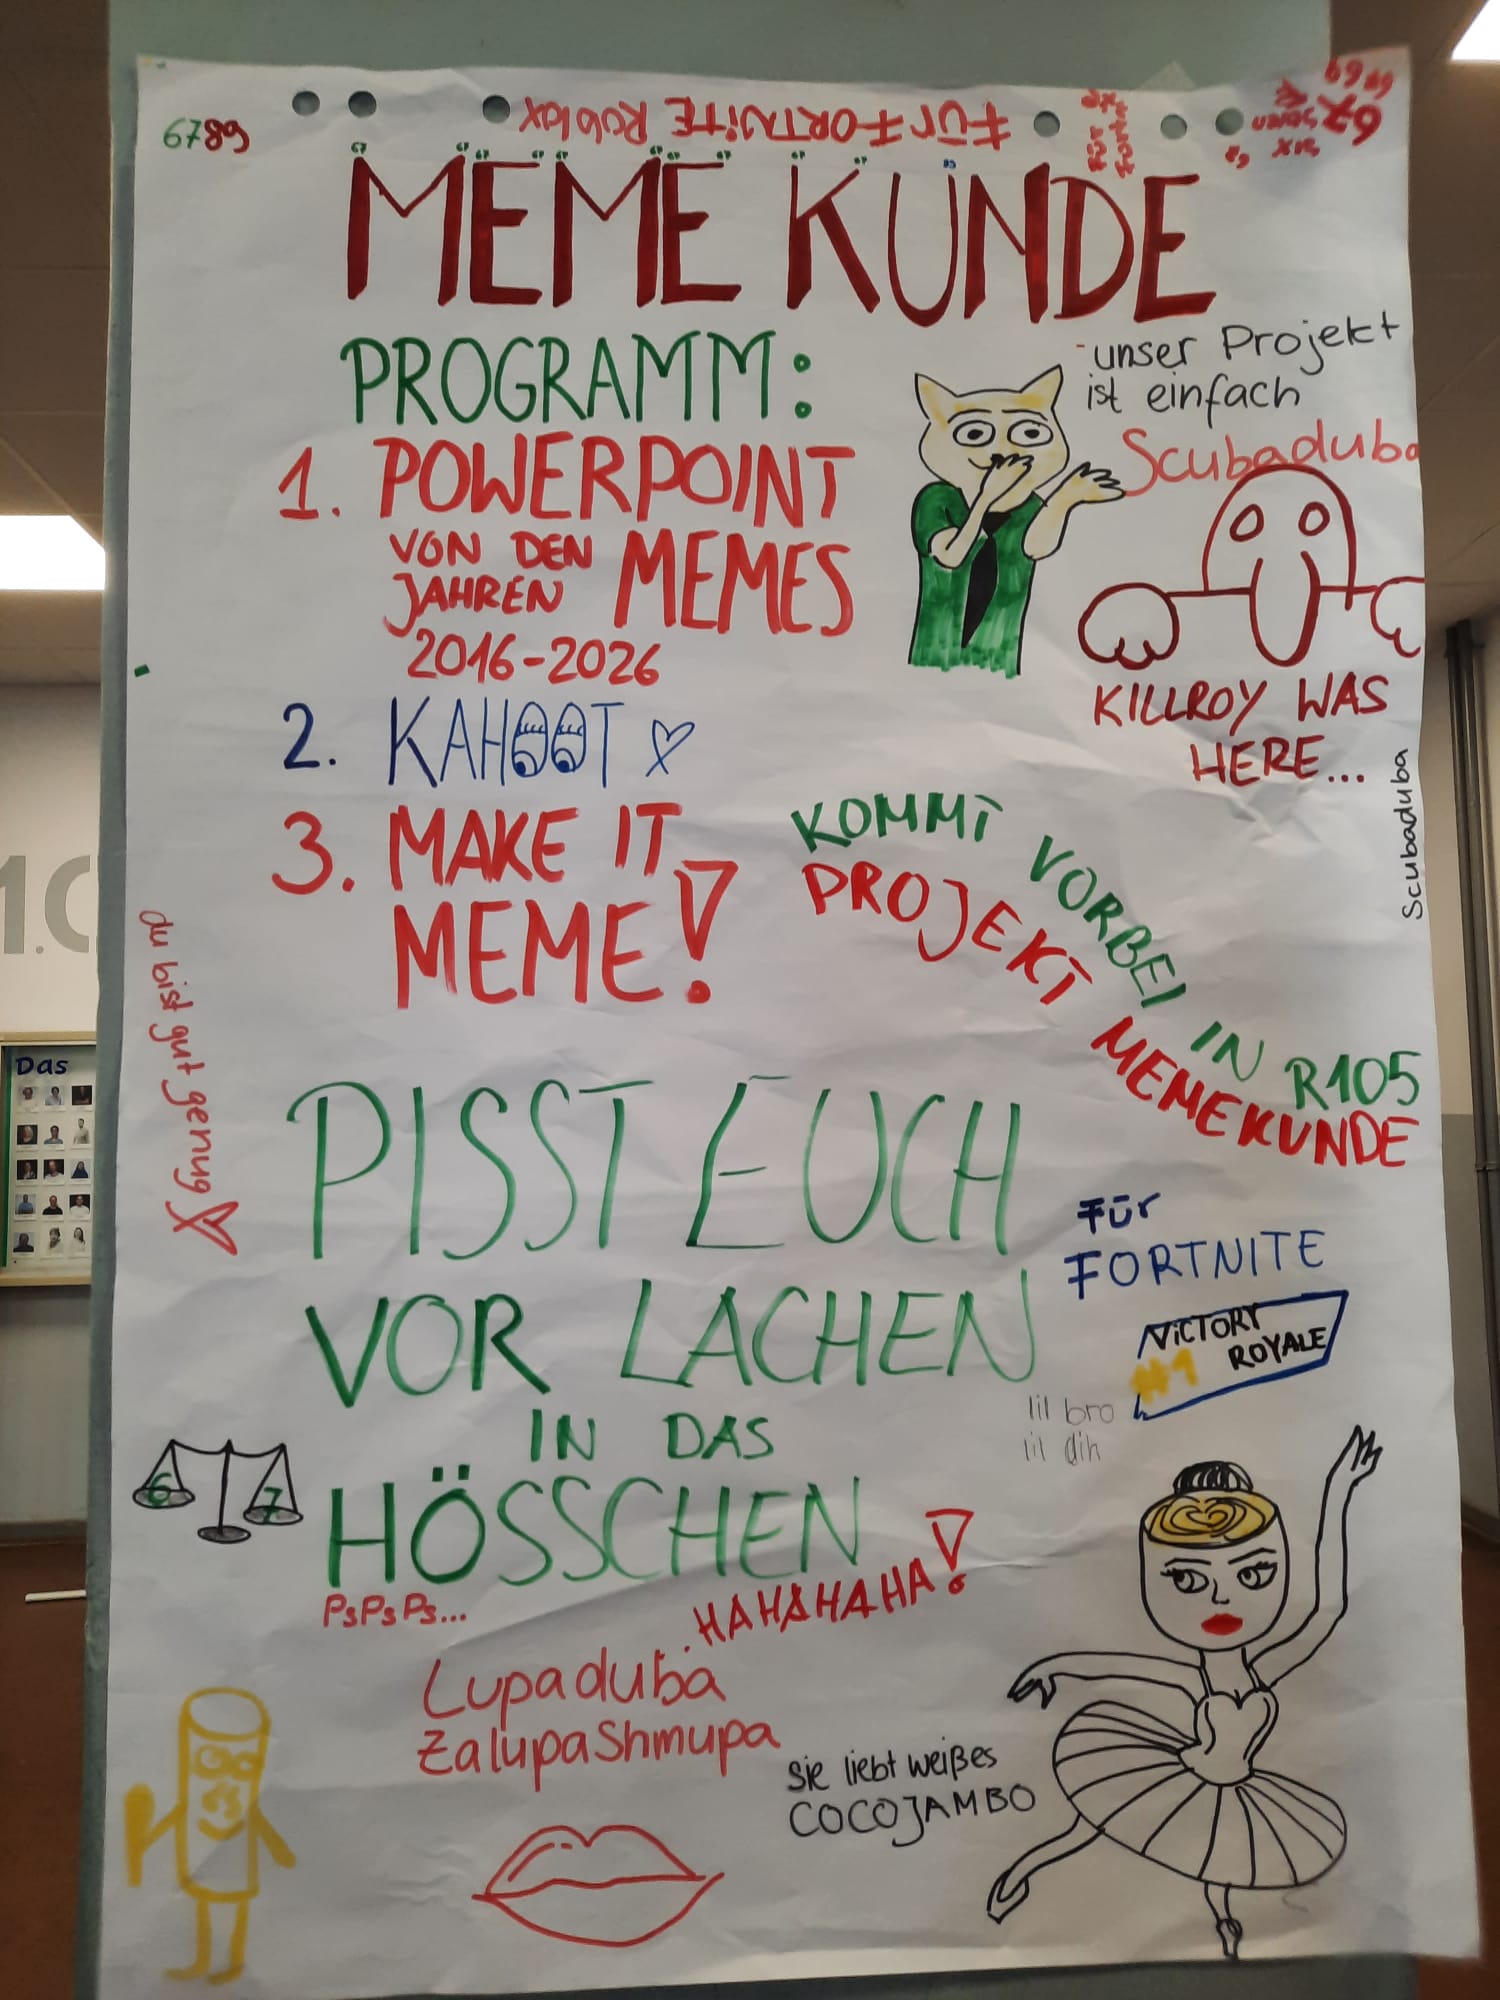 6789
FÜR FORTNITE Roblox
67
69
67
MEME KUNDE
PROGRAMM:
1. POWERPOINT
VON DEN
JAHREN MEMES
2016-2026
2. KAHOOT
3. MAKE IT
MEME!
-unser Projekt
ist einfach
Scubaduba
KILLROY WAS
HERE...
Scubaduba
KOMMT VORBEI IN R105
PROJEKT MEMEKUNDE
du bist gut genug
PISST EUCH
VOR LACHEN
IN DAS
HÖSSCHEN
PsPsPs...
HAHAHAHA!
FÜR
FORTNITE
VICTORY
#1 ROYALE
lil bro
lil dih
6 7
Lupaduba
Zalupashmupa
Sie liebt weißes
COCOJAMBO
Das